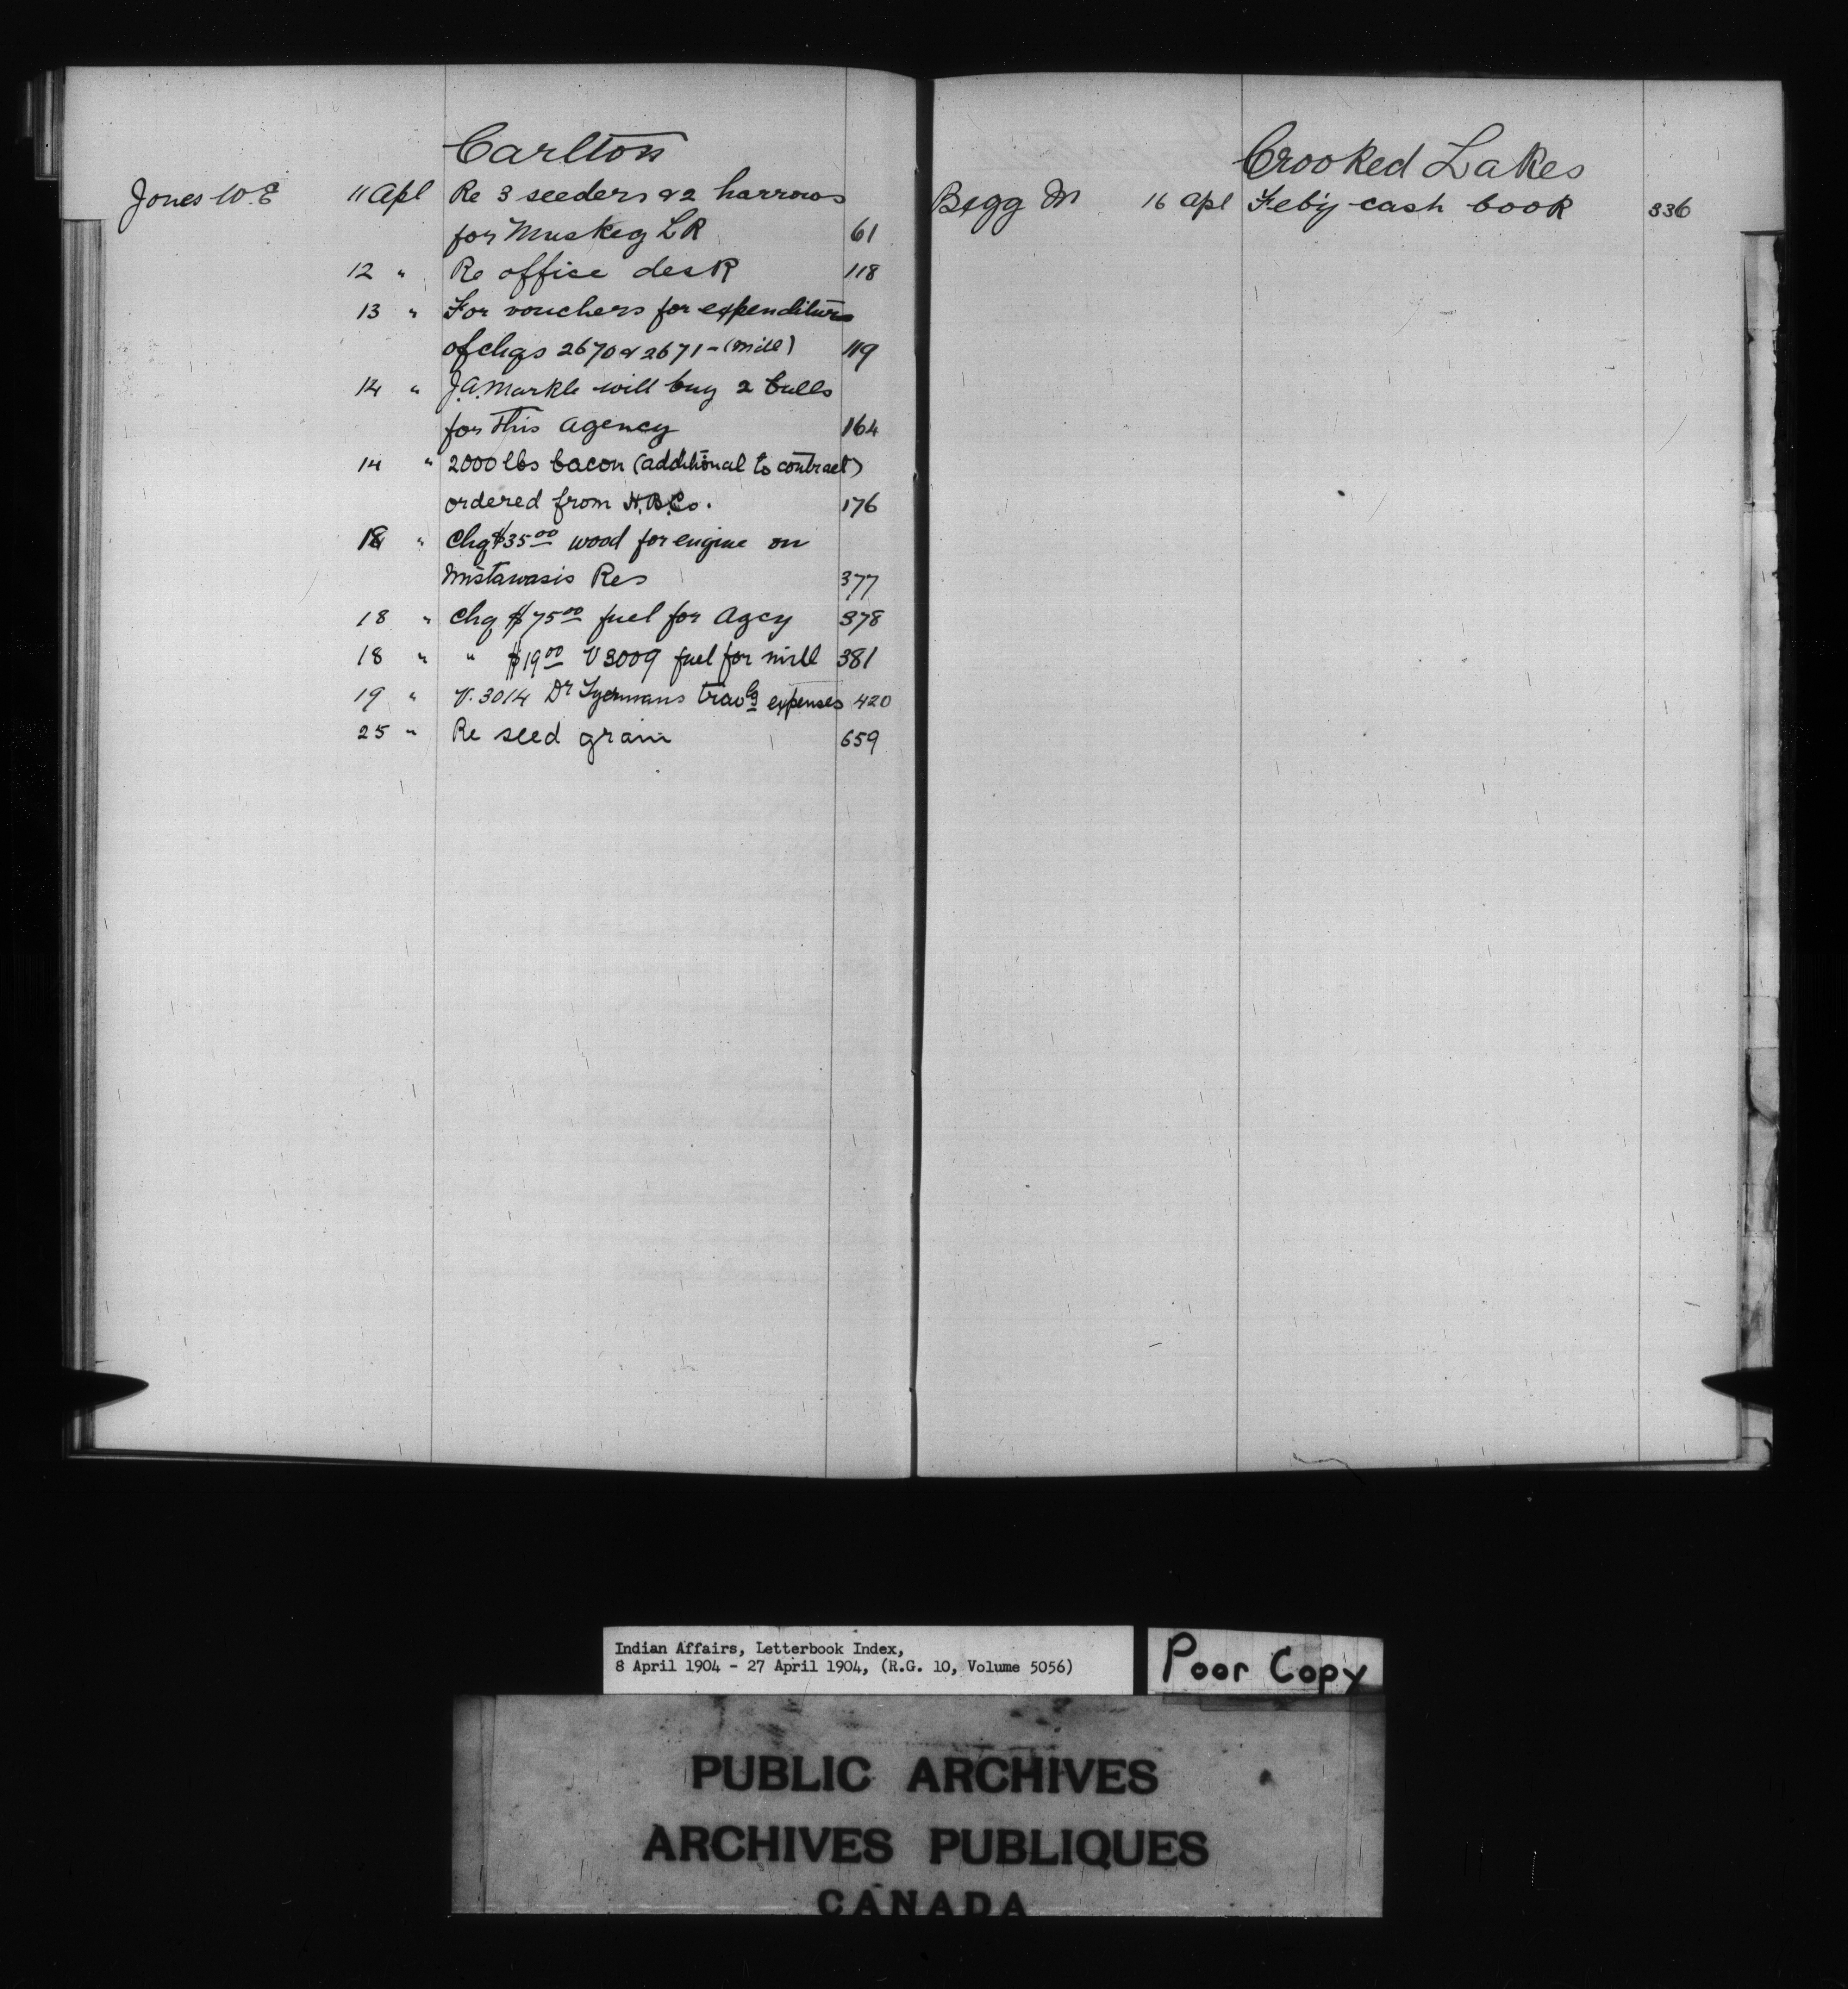 Carlton
Jones W.E 11 Apl Re 3 seeders & 2 harrows
for Muskeg LR 61
12 " Re office desk 118
13 " For vouchers for expenditure
of chqs 2670 & 2671 - (mill) 119
14 " J.A. Markle will buy 2 bulls
for this agency 164
14 " 2000 lbs bacon (additional to contract)
ordered from H.B.Co. 176
18 " Chq $35.00 wood for engine on
Mistawasis Res 377
18 " Chq $75.00 fuel for Agcy 378
18 " " $19.00 V 3009 fuel for mill 381
19 " V. 3014 Dr travlg expenses 420
25 " Re seed grain 659
Crooked Lakes
Begg M 16 Apl Feb'y cash book 336
Indian Affairs, Letterbook Index,
8 April 1904 - 27 April 1904, (R.G. 10, Volume 5056)
Poor Copy
PUBLIC ARCHIVES
ARCHIVES PUBLIQUES
CANADA